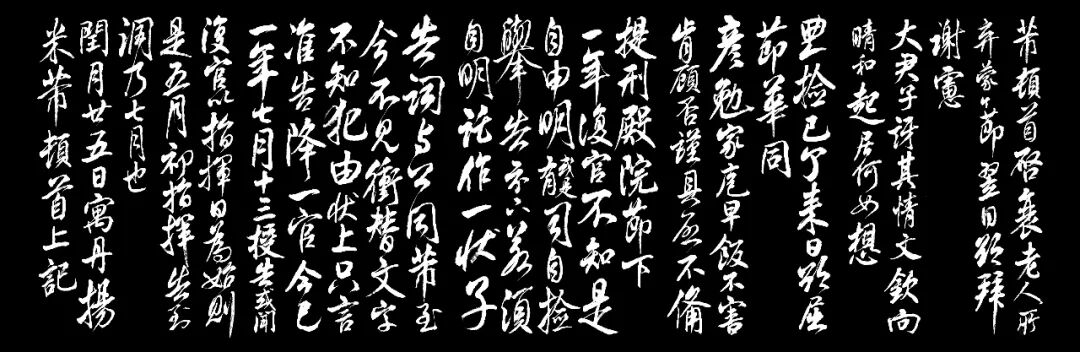 芾頓首啓衰老人所
弃蒙節翌日欲拜
謝憲
大君子訝其情文欽向
晴和起居何如想
畢撿已了来日欲屈
節華同
彦勉家庖早飯不害
肯顧否謹具啓不備
提刑殿院節下
一年復官不知是
自由明或有司自撿
舉告示下若須
自明託作一状子
告詞与公同芾至
今不見衝替文字
不知犯由状上只言
准告降一官今已
一年七月十三授告或聞
復官以指揮日為始則
是五月初指揮告到
潤乃七月也
閏月廿五日寓丹揚
米芾頓首上記